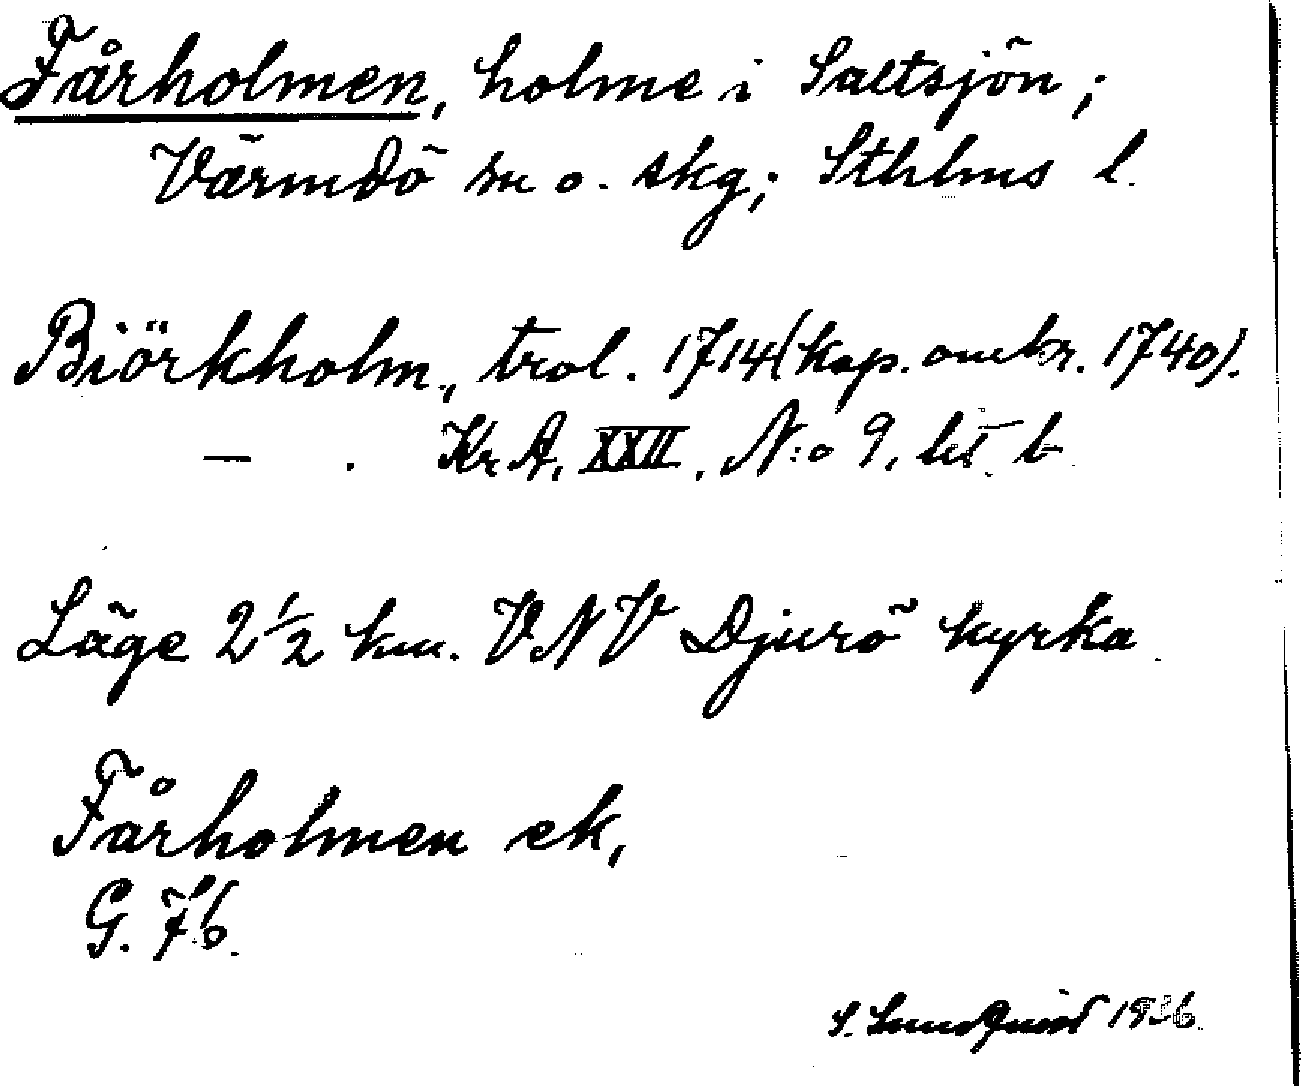 Fårholmen, holme i Saltsjön;
Värmdö sn o. skg; Sthlms l.
Biörkholm, trol. 1714 (kop. omkr. 1740).
— . Kr.A. XXII, N:o 9, lit. b
Läge 2 1/2 km. VNV Djurö kyrka
Fårholmen ek,
G. 76.
S. Lundquist 1936